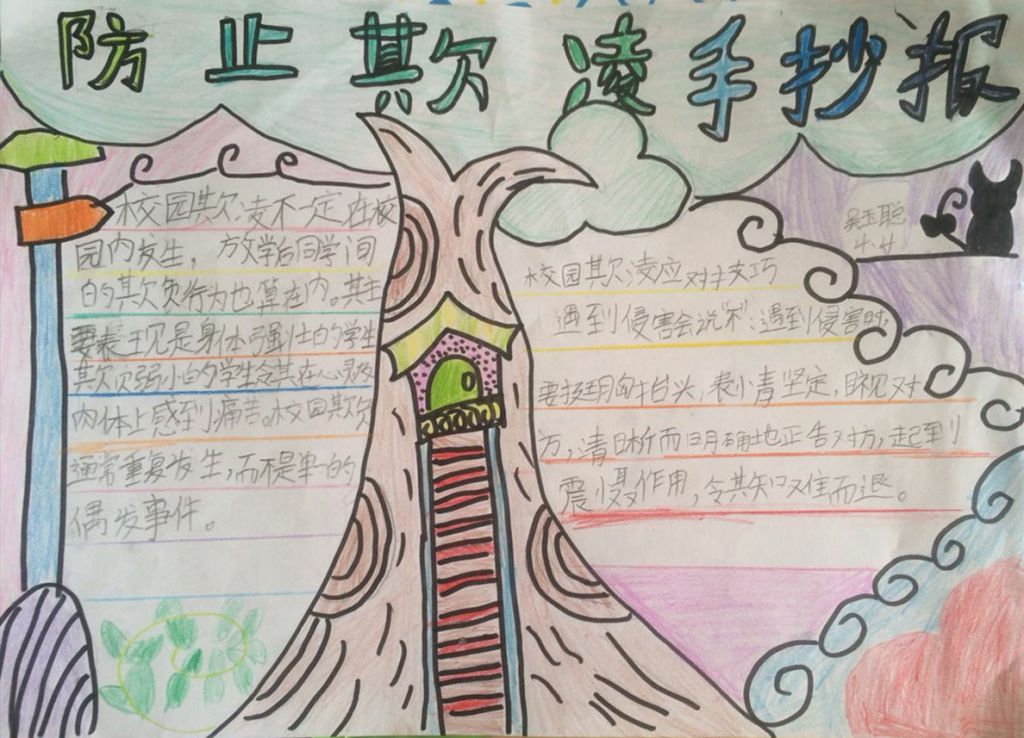 防止欺凌手抄报
校园欺凌不一定在校
园内发生，放学后同学间
的欺负行为也算在内。其主
要表现是身体强壮的学生
欺负弱小的学生令其在心灵及
肉体上感到痛苦。校园欺负
通常重复发生，而不是单一的
偶发事件。
吴玉聪
4.4
校园欺凌应对技巧
遇到侵害会说"不"：遇到侵害时，
要挺胸抬头，表情坚定，眼视对
方，清晰而明确地正告对方，起到
震慑作用，令其知难而退。